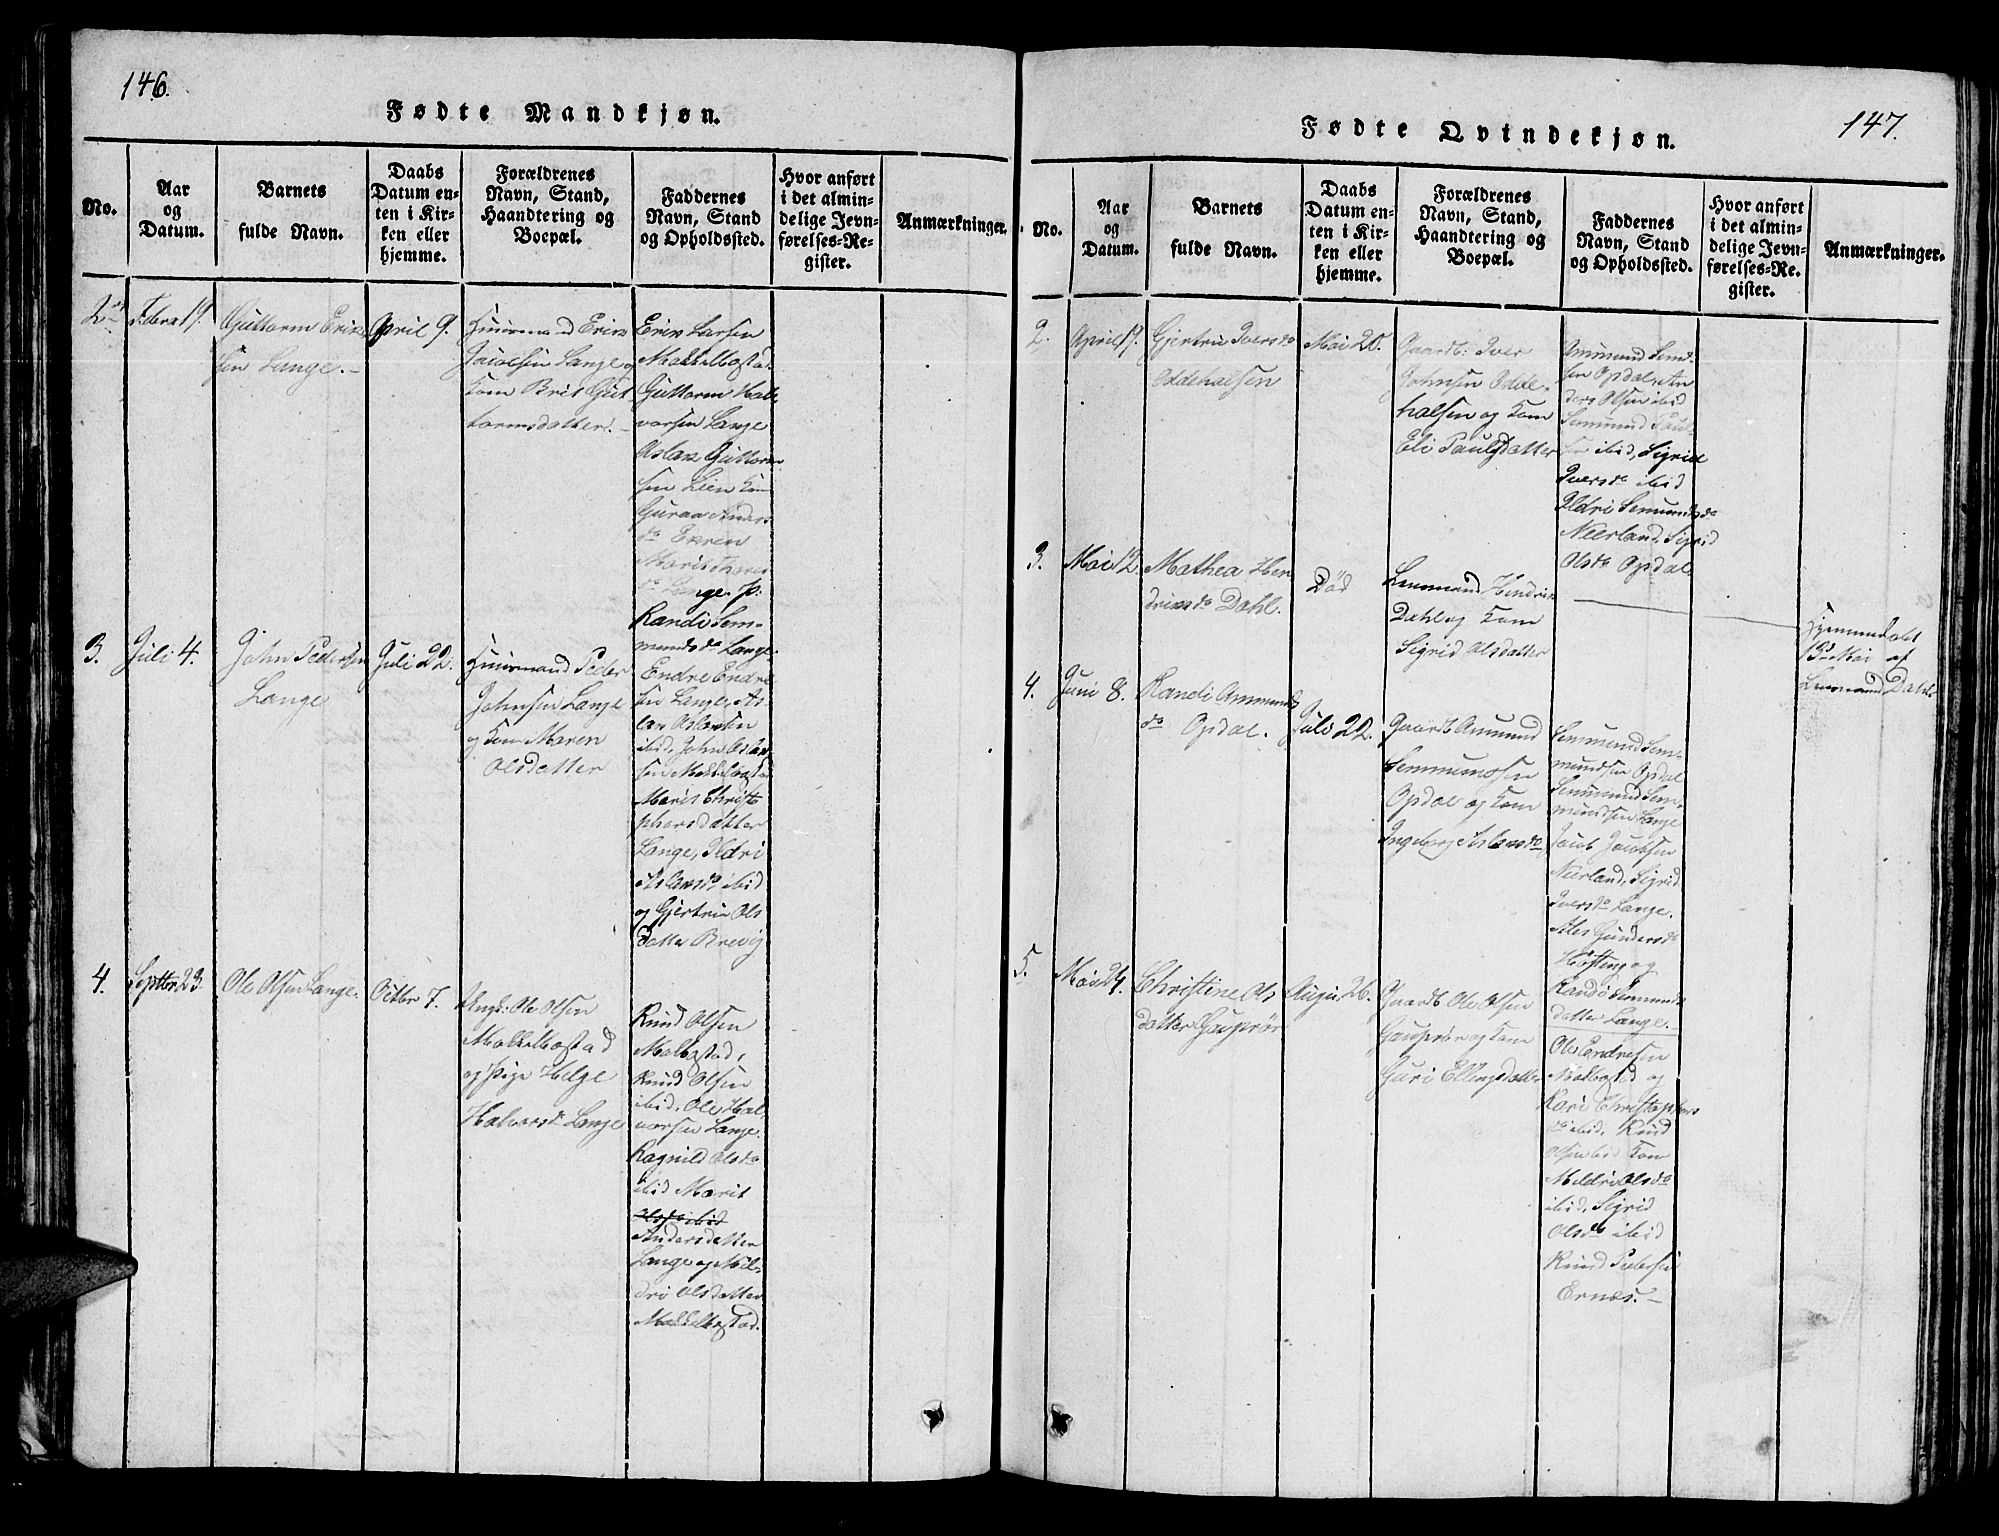 146.
Fødte Mandkjøn.
No.
Aar
og
Datum.
Barnets
fulde Navn.
Daabs
Datum en-
ten i Kir-
ken eller
hjemme.
Forældrenes
Navn, Stand,
Haandtering og
Boepæl.
Faddernes
Navn, Stand
og Opholdssted.
Hvor anført
i det almin-
delige Jevn-
førelses-Re-
gister.
Anmærkninger.
2
Febru 19.
Guttorm Erik
sen Lange.
April 9.
Huusmand Erik
Jacobsen Lange og
Kone Brit Gut
tormsdatter.
Erik Larsen
Mekkelbostad.
Guttorm Hal
vorsen Lange
Aslak Guttorm
sen Lien Kone
Guraa Anders
da
Marit
da Lange. p.
Randi Sem-
mundsda Lange.
3.
Juli 4.
John Pedersen
Lange
Juli 22.
Huusmand Peder
Johnsen Lange
og Kone Maren
Olsdatter
Endre Endre
sen Lange, As
lak Aslaksen
ibid, John Aslak
sen Mekkelbostad
Marit Christo
phersdatter
Lange, Ildri
Aslaksda ibid
og Gjertrue Ols
datter Brevig
4.
Septbr 23.
Ole Olsen Lange.
Octbr 7.
Ungk: Ole Olsen
Mekkelbostad
og Pige Helge
Halvorsda Lange
Knud Olsen
Malbostad,
Knud Olsen
ibid, Ole Hal
vorsen Lange.
Ragnild Olsda
ibid Marit
Olsda ibid
Andersdatter
Lange og Mil-
dri Olsdatter
Mekkelbostad.
147.
Fødte Qvindekjøn.
No.
Aar
og
Datum.
Barnets
fulde Navn.
Daabs
Datum en-
ten i Kir-
ken eller
hjemme.
Forældrenes
Navn, Stand,
Haandtering og
Boepæl.
Faddernes
Navn, Stand
og Opholdssted.
Hvor anført
i det almin-
delige Jevn-
førelses-Re-
gister.
Anmærkninger.
2.
April 19.
Gjertrue Iversda
Oddehalsen
Mai 20.
Gaardb: Iver
Johnsen Odde-
halsen og Kone
Eli Paulsdatter
Ammund Sem-
sen Opdal, An
ders Olsen ibid
Semmund Paul
sen ibid, Sigrid
Iversda ibid
Ildri Semundsda
Neerland, Sigrid
Olsda Opdal.
3.
Mai 12.
Mathea Hen
driksda Dahl.
Död
Lensmand Hendrik
Dahl og Kone
Sigrid Olsdatter
Hjemmedøbt
13de Mai af
Lensmand Dahl
4.
Juni 8.
Randi Ammunds
da Opdal.
Juli 22.
Gaardb Ammund
Semmundsen
Opdal og Kone
Ingeborg Aslaksda
Semmund Sem-
mundsen Opdal
Semmund Sem-
mundsen Lange
Jacob Jacobsen
Neerland, Sigrid
Iversda Lange.
Ales Gundersda
Hösteng og
Randi Semmunds
datter Lange.
5.
Mai 24.
Christine Ols
datter Gauprör
Augu. 26.
Gaardb Ole Olsen
Gauprör og Kone
Guri Ellingsdatter
Ole Endresen
Malbostad og
Kari Christophers
da ibid, Knud
Olsen ibid Kone
Mildri Olsda
ibid, Sigrid
Olsda ibid
Knud Pedersen
Ernæs.